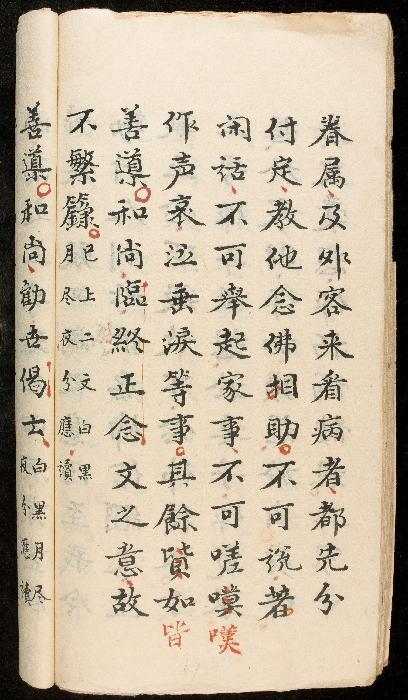 眷属及外客来看病者都先分
付定教他念佛相助不可説著
闲話不可舉起家事不可嗟嗼
嘆
作声哀泣垂淚等事其餘貲如
皆
善導和尚臨終正念文之意故
不繁籙
已上二文白黑
月尽夜分應讀
善導和尚勸世偈云
白黑月尽
夜分應讀